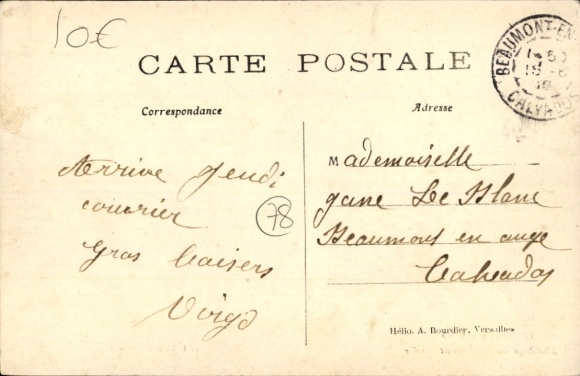 10€
CARTE POSTALE
BEAUMONT-EN
CALVADOS
Correspondance
Adresse
Arrive Jeudi
courrier
Gros baisers
78
Mademoiselle
Jane Le Blanc
Beaumont en auge
Calvados
Hélio. A. Bourdier, Versailles